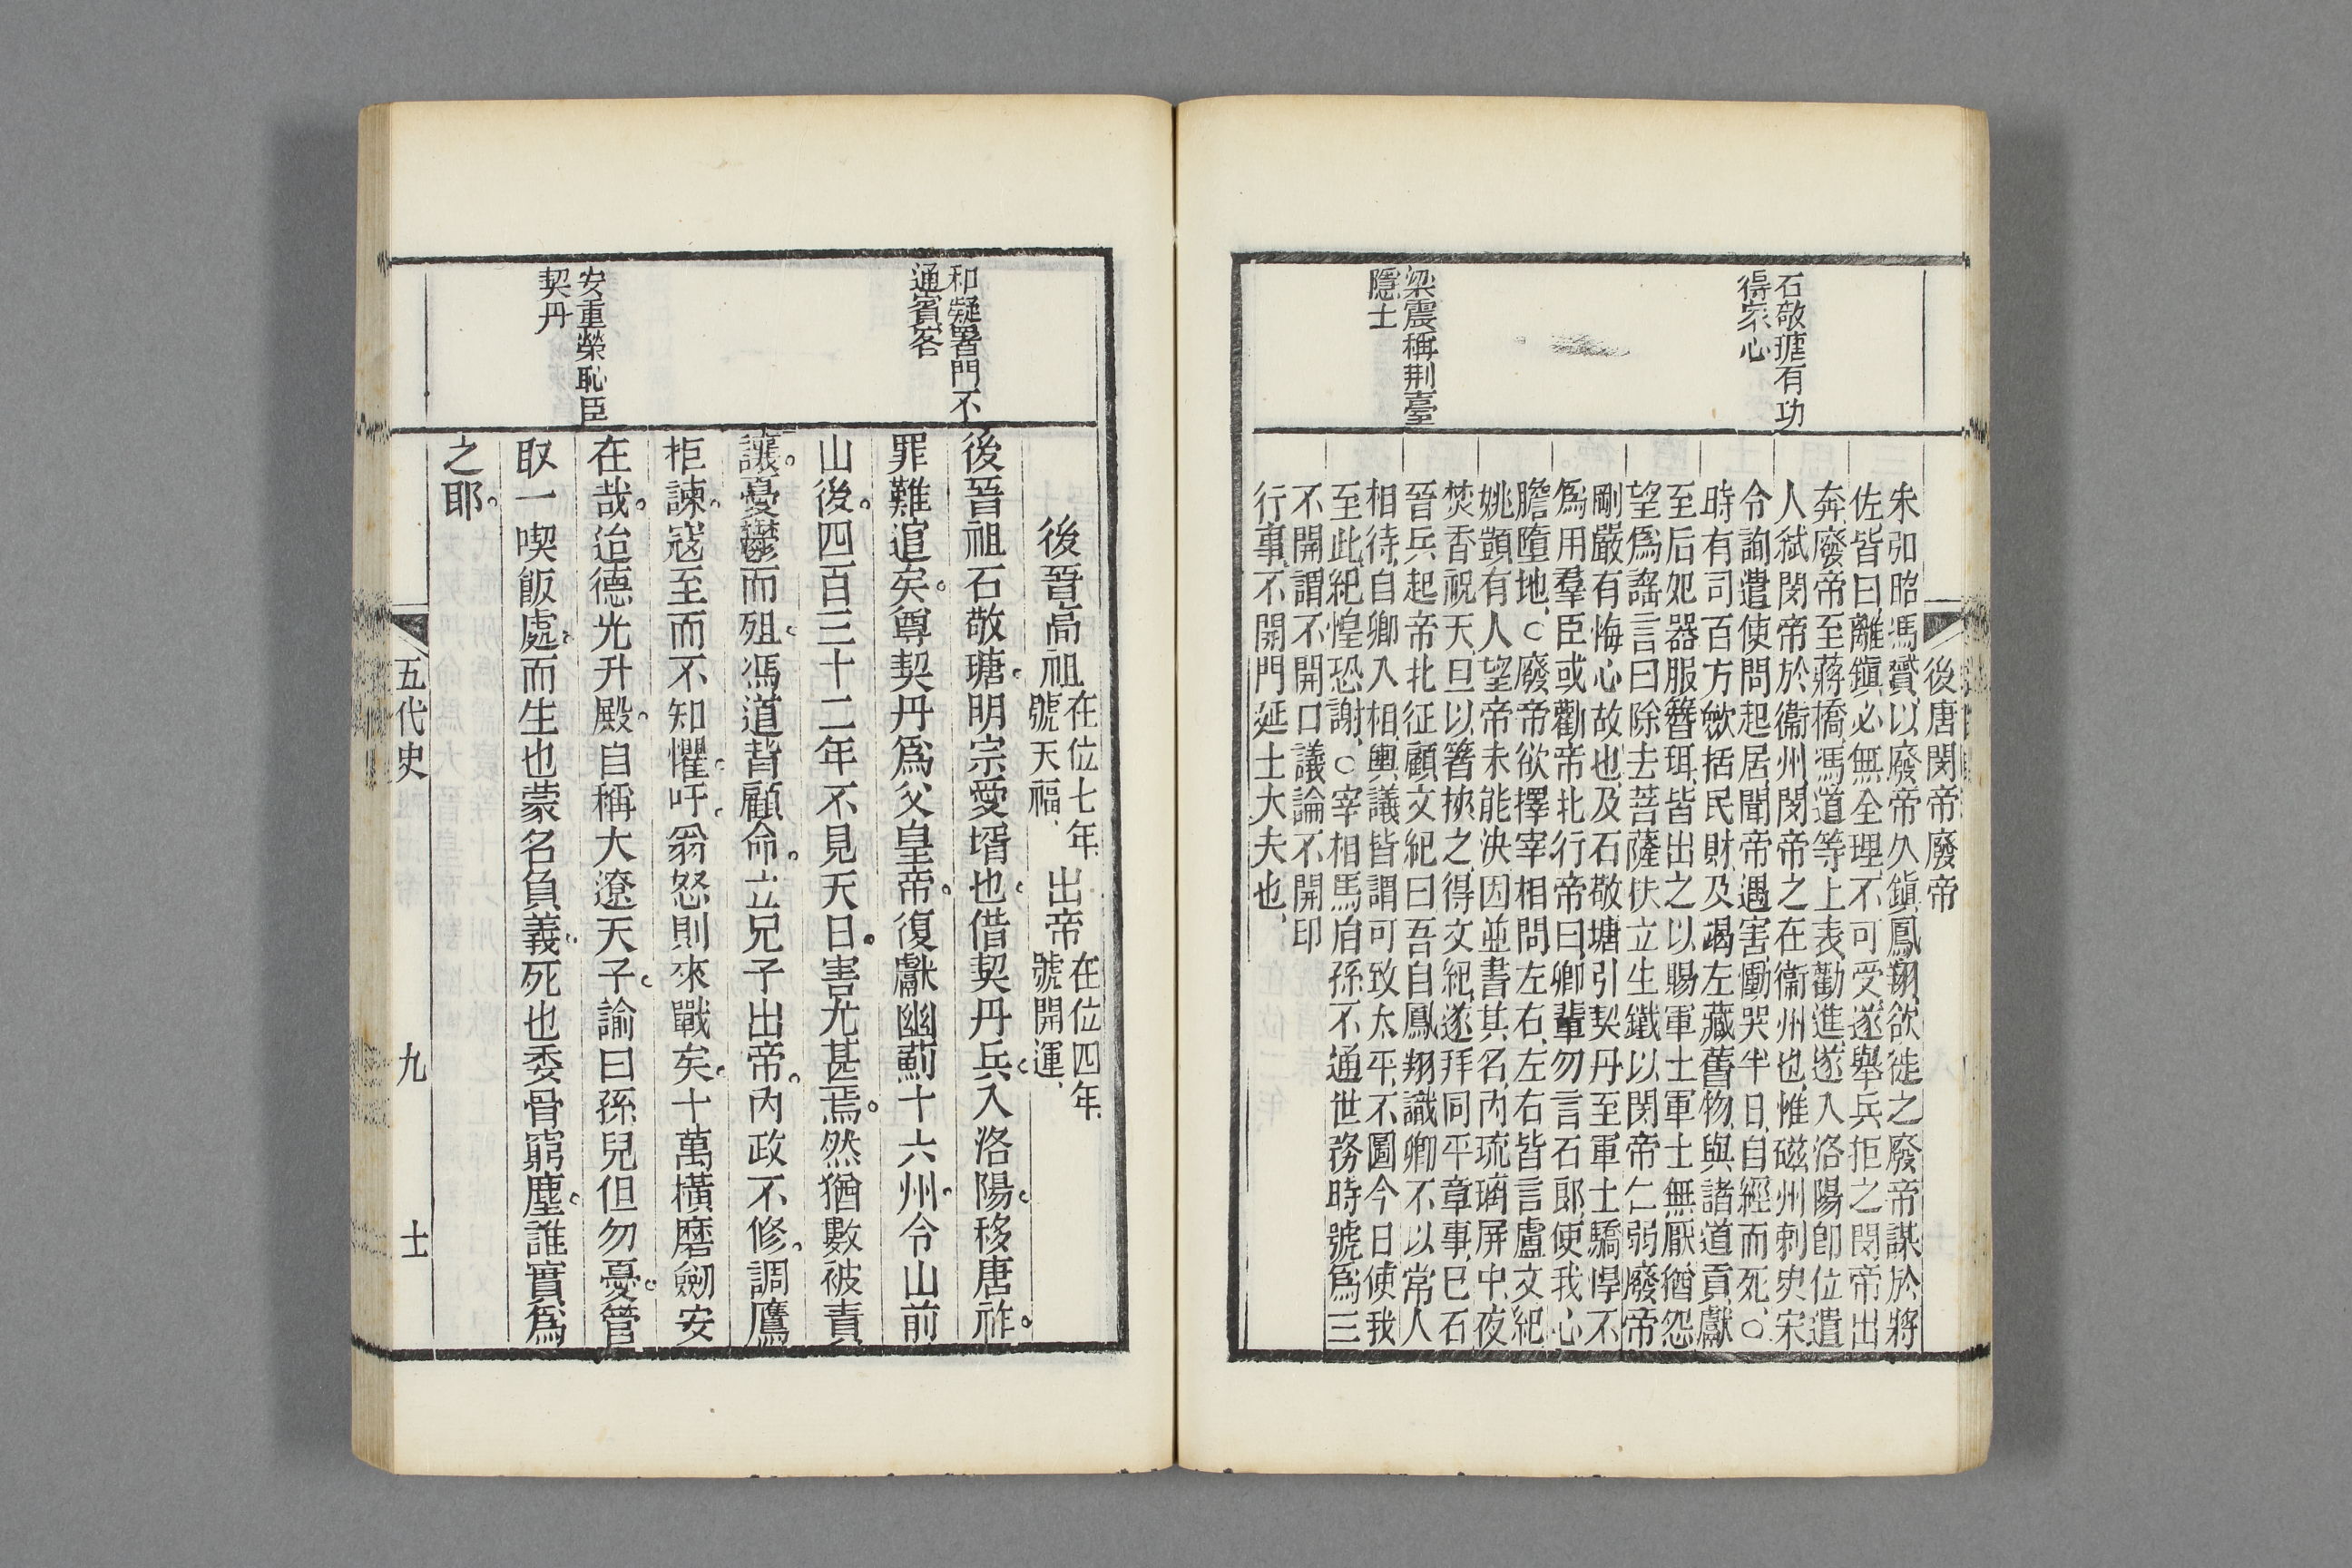 後唐閔帝廢帝
石敬瑭有功
得眾心
梁震稱荆臺
隱士
朱弘昭馮贇、以廢帝久鎮鳳翔、欲徙之、廢帝謀於將
佐、皆曰、離鎮必無全理、不可受、遂舉兵拒之、閔帝出
奔、廢帝至蔣橋、馮道等上表勸進、遂入洛陽卽位、遣
人弑閔帝於衞州、閔帝之在衞州也、惟磁州刺史宋
令詢遣使問起居、聞帝遇害、慟哭半日、自經而死、○
時有司百方斂括民財、及竭左藏舊物、與諸道貢獻、
至后妃器服簪珥、皆出之以賜軍士、軍士無厭、猶怨
望爲謠言曰、除去菩薩、扶立生鐵、以閔帝仁弱、廢帝
剛嚴、有悔心故也、及石敬塘引契丹至、軍士驕悍、不
爲用、羣臣或勸帝北行、帝曰、卿輩勿言石郎、使我心
膽墮地、○廢帝欲擇宰相、問左右、左右皆言盧文紀
姚顗有人望、帝未能決、因並書其名、內琉璃屏中、夜
焚香祝天、旦以箸挾之、得文紀、遂拜同平章事、已石
晉兵起、帝北征、顧文紀曰、吾自鳳翔識卿、不以常人
相待、自卿入相、輿議皆謂可致太平、不圖今日使我
至此、紀惶恐謝、○宰相馬胤孫、不通世務、時號爲三
不開、謂不開口議論、不開印
行事、不開門延士大夫也、
和凝署門不
通賓客
安重榮恥臣
契丹
後晉高祖在位七年、號天福、出帝在位四年、號開運、
後晉祖石敬瑭。明宗愛壻也。借契丹兵。入洛陽。移唐祚。
罪難逭矣。尊契丹爲父皇帝。復獻幽薊十六州。令山前
山後。四百三十二年不見天日。害尤甚焉。然猶數被責
讓。憂鬱而殂。馮道背顧命。立兄子出帝。內政不修。調鷹
拒諫。寇至而不知懼。吁。翁怒則來戰矣。十萬橫磨劒安
在哉。迨德光升殿。自稱大遼天子。諭曰孫兒但勿憂。管
取一喫飯處。而生也蒙名負義。死也委骨窮塵。誰實爲
之耶。
五代史
九
士